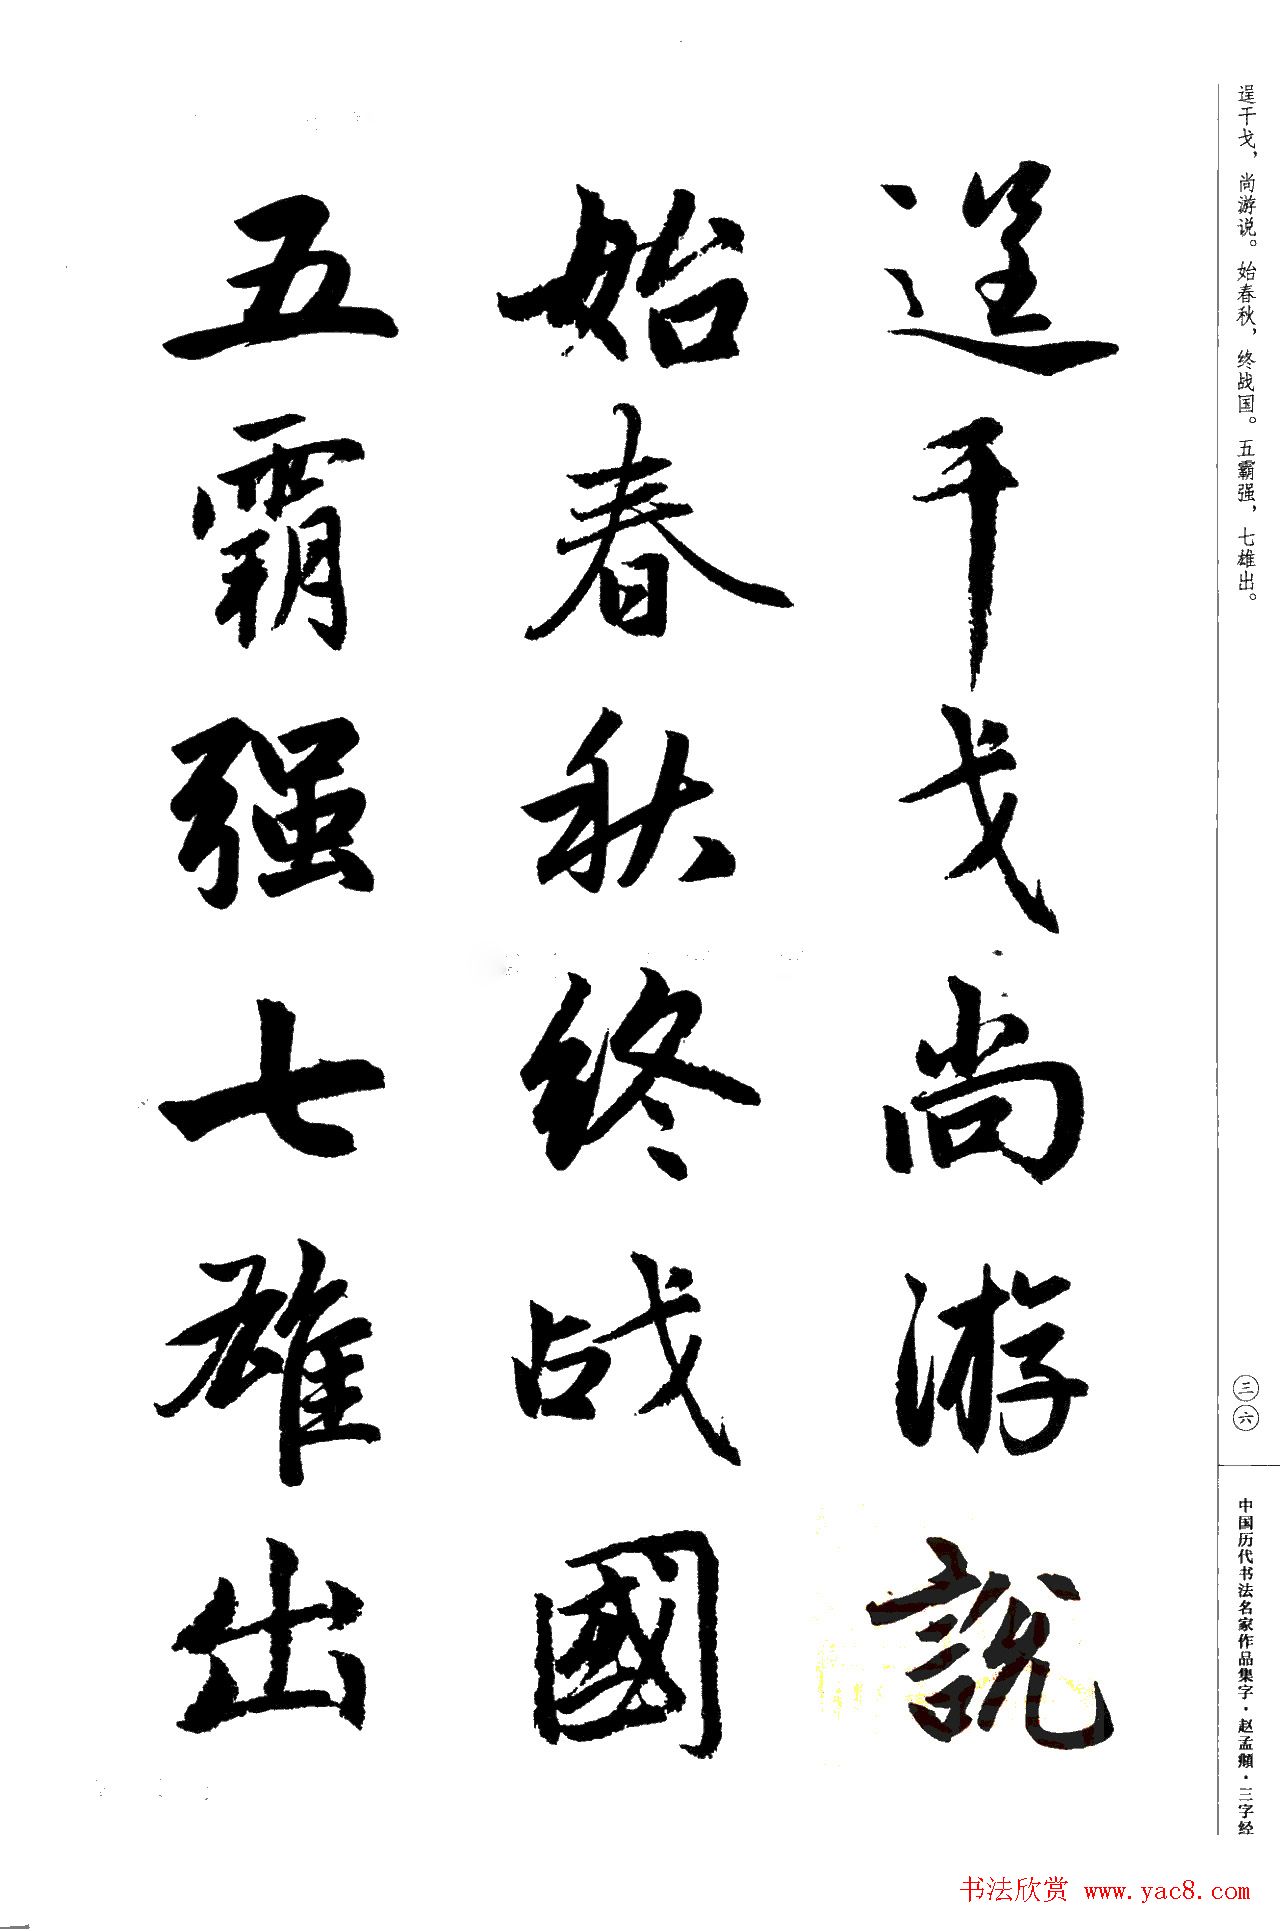 逞干戈，尚游说。始春秋，终战国。五霸强，七雄出。
逞干戈尚游說
始春秋终战國
五霸强七雄出
三六
中国历代书法名家作品集字·赵孟頫·三字经
书法欣赏 www.yac8.com